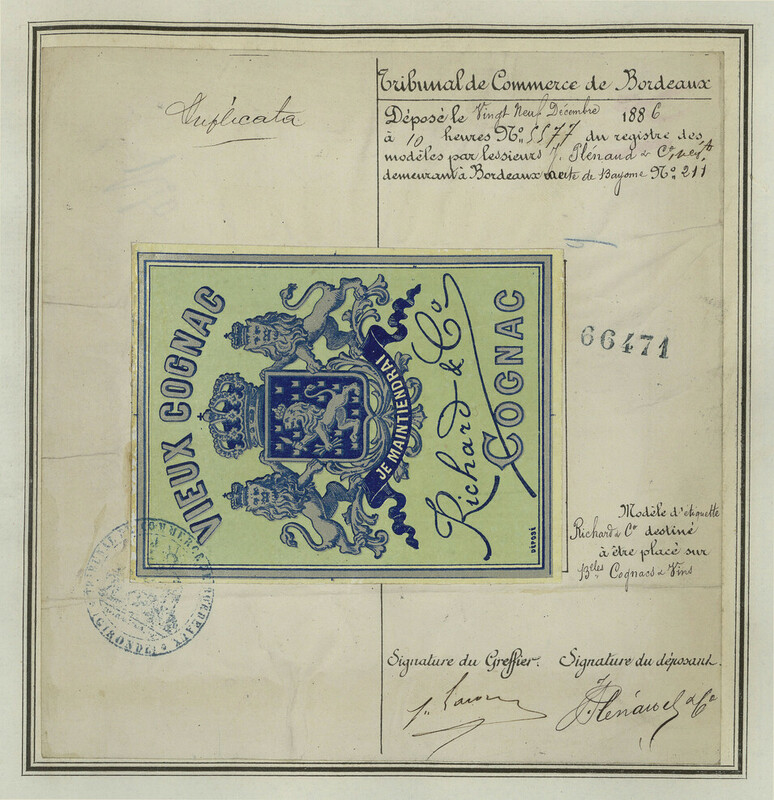 Duplicata
Tribunal de Commerce de Bordeaux
Déposé le Vingt Neuf Décembre 1886
à 10 heures No. 5577 du registre des
modèles par les sieurs J. Plénaud & Co
demeurant à Bordeaux de Bayonne No. 211
VIEUX COGNAC
JE MAINTIENDRAI
Richard & Co
COGNAC
DÉPOSÉ
66471
Modèle d'étiquette
Richard & Co destiné
à être placé sur
Blles Cognacs & Vins
TRIBUNAL DE COMMERCE BORDEAUX
(GIRONDE)
Signature du Greffier. Signature du déposant.
J. Plénaud & Co